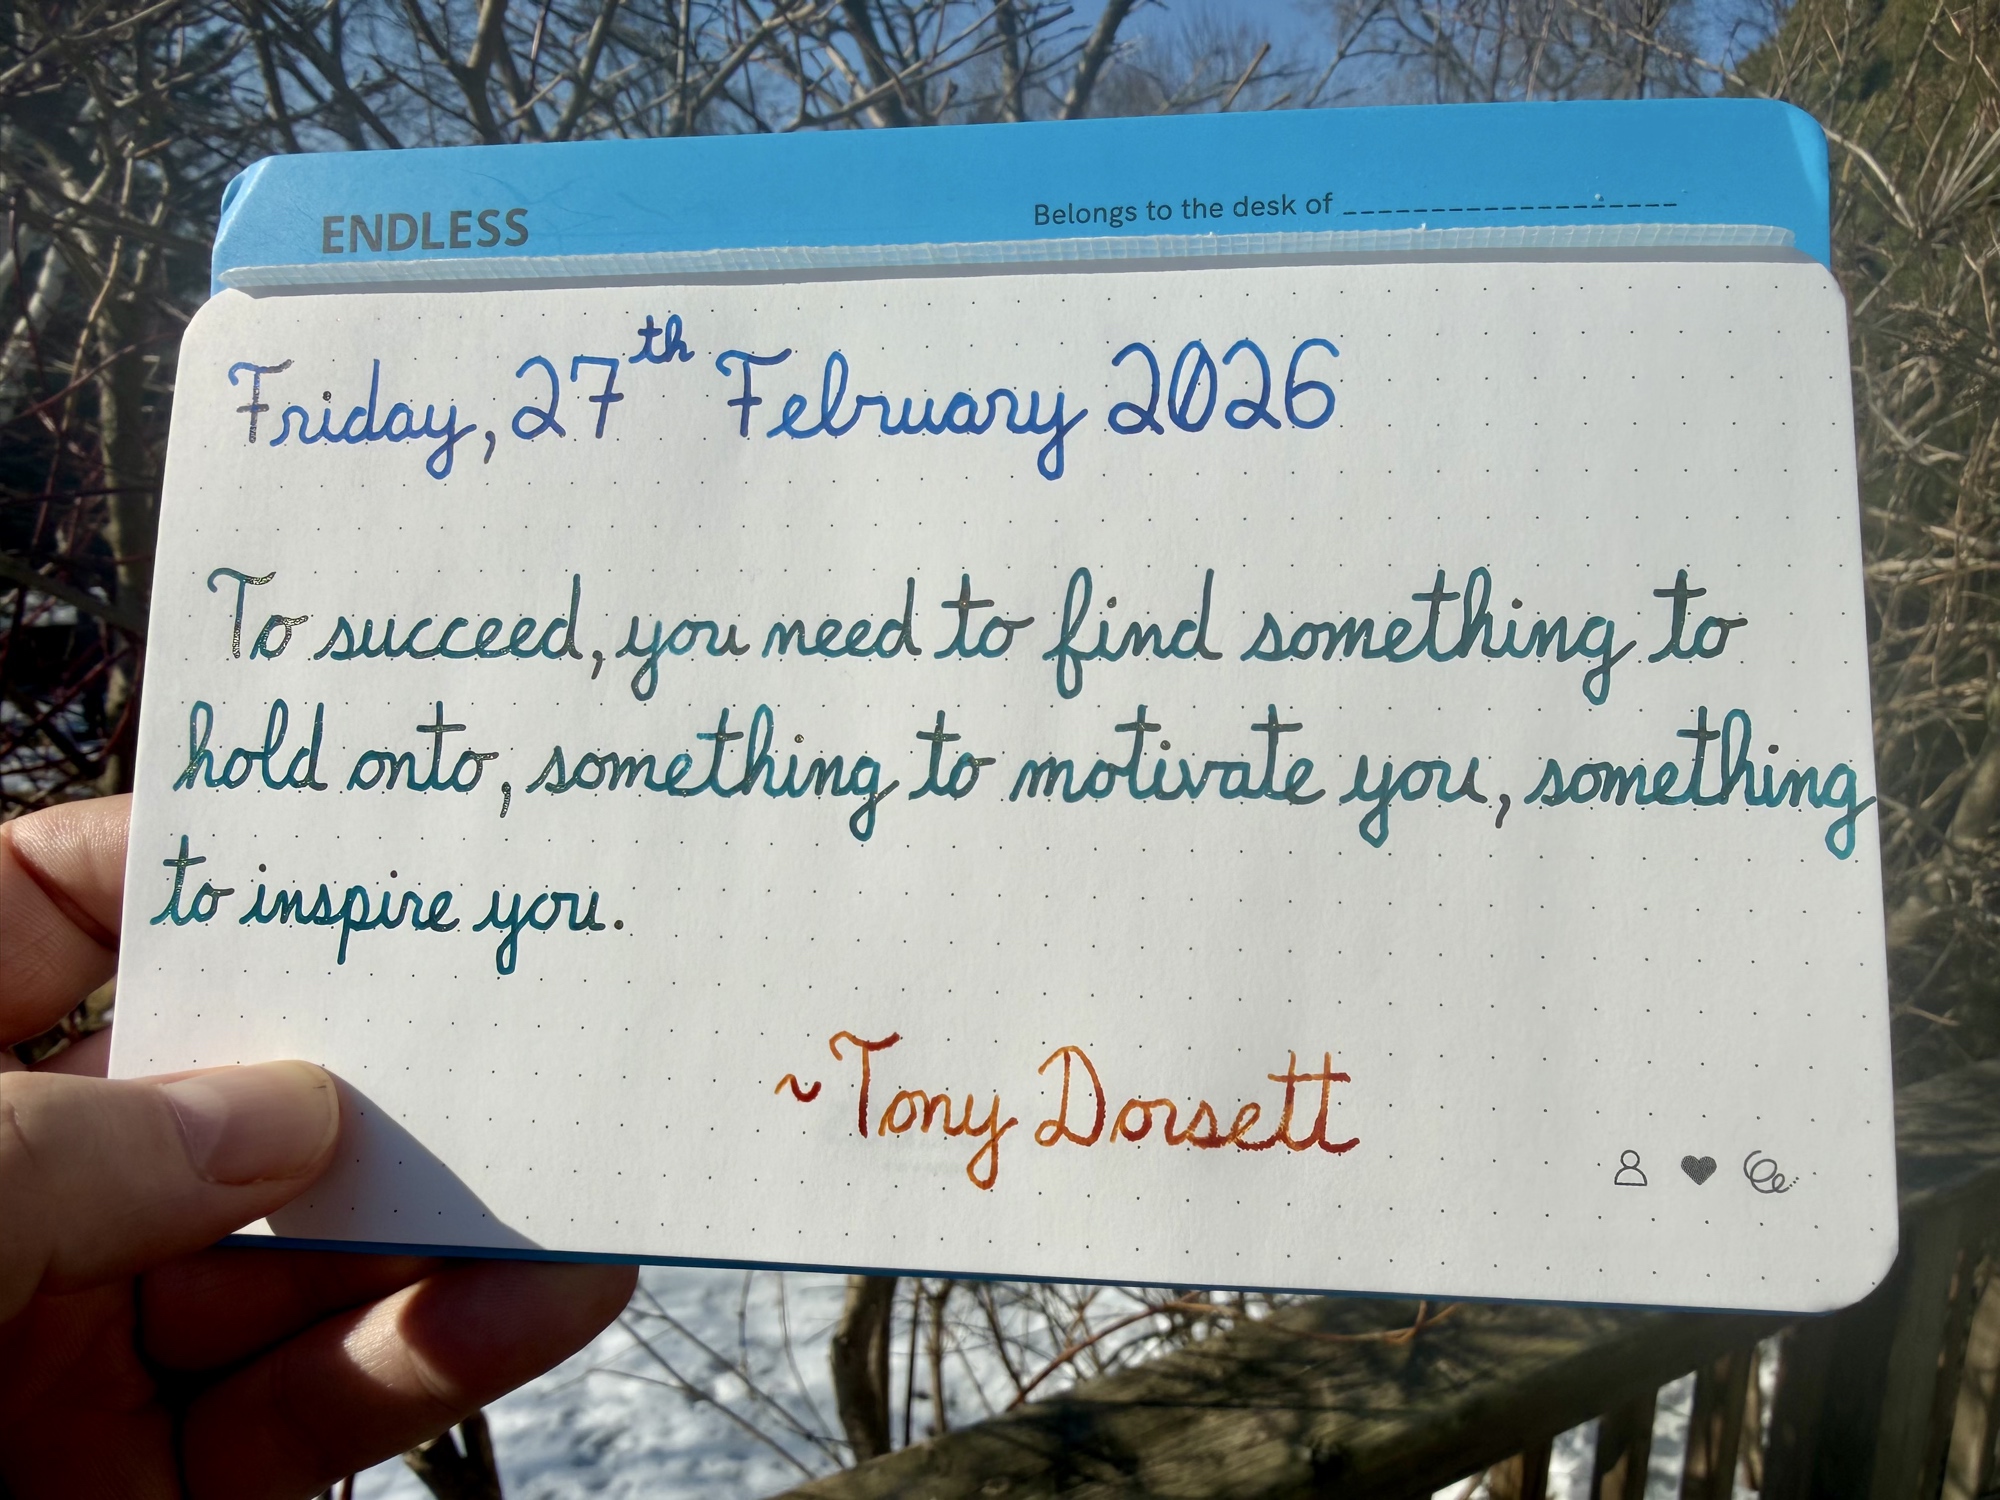 ENDLESS
Belongs to the desk of
Friday, 27th February 2026
To succeed, you need to find something to
hold onto, something to motivate you, something
to inspire you.
~Tony Dorsett